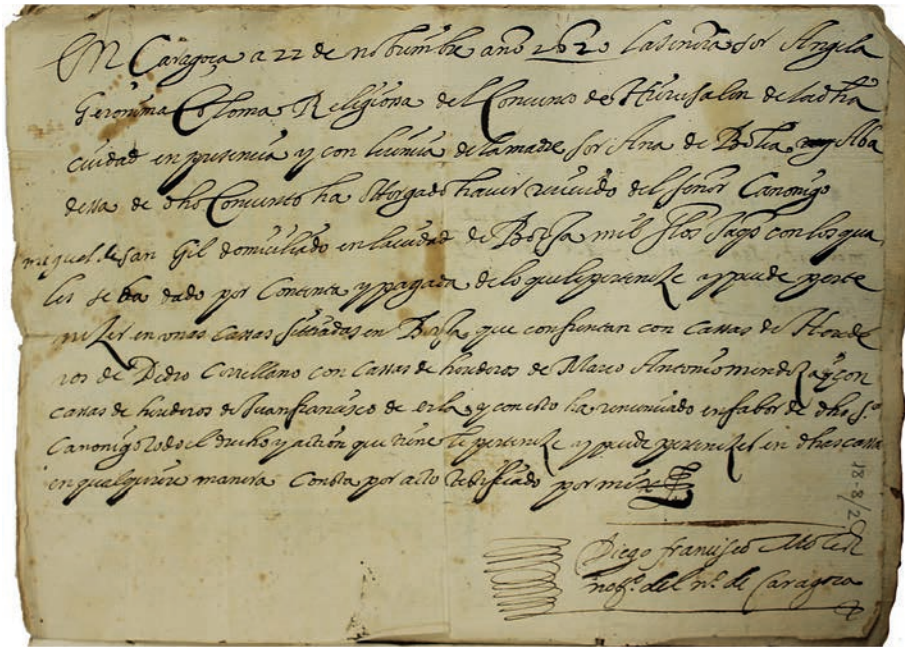 En Caragoça a 22 de nobiembre año 1620 la señora sor Angela
Geronima Coloma Religiosa del Convento de Hierusalen de la dha
ciudad en presencia y con licencia de la madre sor Ana de Bolea Aba
dessa de dho Convento ha otorgado haver recivido del señor Canonigo
miguel de san Gil domiciliado en la ciudad de Borja mil slos Jaqs con los qua
les se ha dado por Contenta y pagada de lo que le pertenesze y puede perte
neszer en unas cassas sitiadas en Borja que confrentan con cassas de Herede
ros de Pedro con cassas de herederos de Marco Antonio mendoza y con
cassas de herederos de Juan francisco de erla y con esto ha renunciado en fabor de dho sr
Canonigo todo el drecho y action que tiene le pertenesze y puede peteneszer en dhas cassas
en qualquiere manera Consta por acto testificado por mi
Diego francisco Moles
noto del no de Caragoça
18-8/2